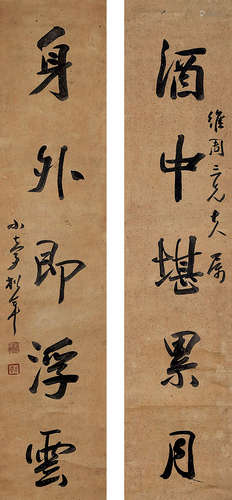 維周三兄大人屬
酒中堪累月
身外即浮雲
小亭